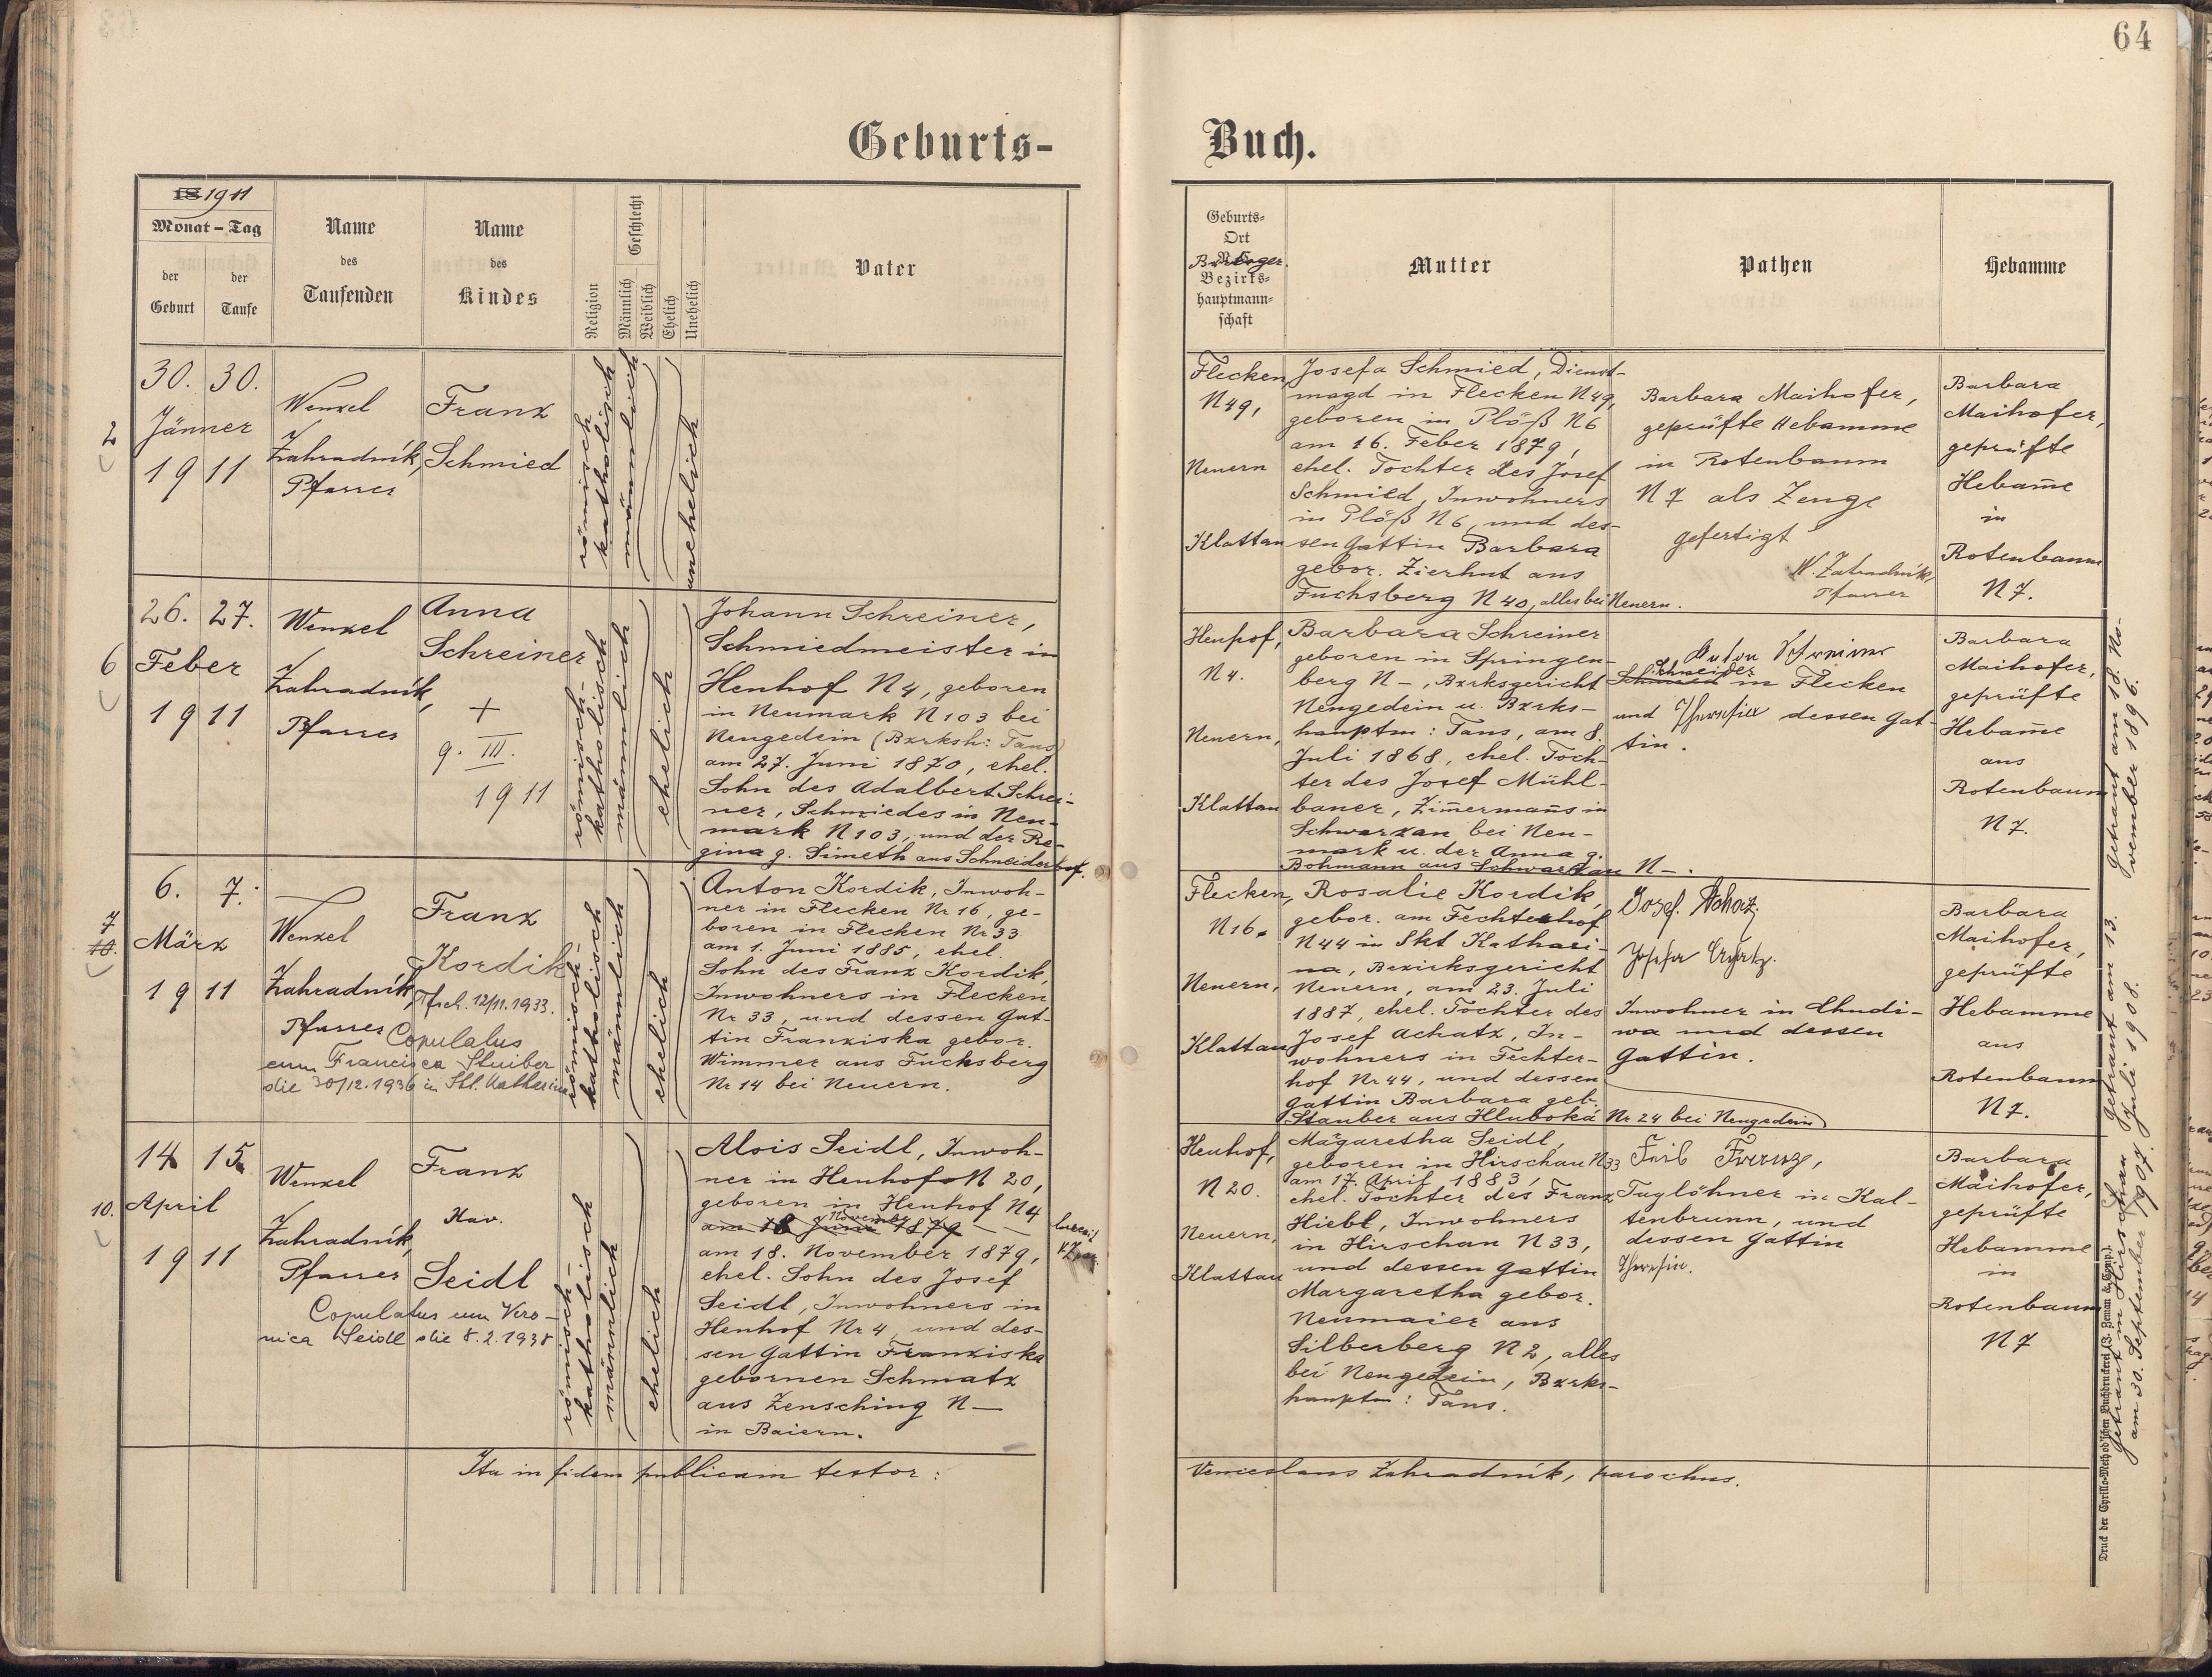 64
Geburts-
Buch.
18 1911
Monat – Tag
der Geburt
der Taufe
Name
des
Taufenden
Name
des
Kindes
Religion
Geschlecht
Männlich
Weiblich
Ehelich
Unehelich
Vater
Geburts-
Ort
Bezirks-
hauptmann-
schaft
Mutter
Pathen
Hebamme
2
30. 30.
Jänner
1911
Wenzel
Zahradník,
Pfarrer
Franz
Schmied
römisch
katholisch
männlich
unehelich
Flecken,
N 49,
Neuern
Klattau
Josefa Schmied, Dienst-
magd in Flecken N 49,
geboren in Plöß N 6
am 16. Feber 1879,
ehel. Tochter des Josef
Schmied, Inwohners
in Plöß N 6, und des-
sen Gattin Barbara
gebor. Zierhut aus
Fuchsberg N 40, alles bei Neuern.
Barbara Maihofer,
geprüfte Hebamme
in Rotenbaum
N 7 als Zeuge
gefertigt
W. Zahradník,
Pfarrer
Barbara
Maihofer,
geprüfte
Hebam̄e
in
Rotenbaum
N 7.
6
26. 27.
Feber
1911
Wenzel
Zahradník,
Pfarrer
Anna
Schreiner
+
9. III.
1911
römisch-
katholisch
männlich
ehelich
Johann Schreiner,
Schmiedmeister in
Henhof N 4, geboren
in Neumark N 103 bei
Neugedein (Bzrksh: Taus)
am 27. Juni 1870, ehel.
Sohn des Adalbert Schrei-
ner, Schmiedes in Neu-
mark N 103, und der Re-
gina g. Simeth aus Schneiderhof.
Henhof,
N 4.
Neuern,
Klattau
Barbara Schreiner
geboren in Springen-
berg N –, Bzrksgericht
Neugedein u. Bzrks-
hauptm: Taus, am 8.
Juli 1868, ehel. Toch-
ter des Josef Mühl-
bauer, Zim̄ermans in
Schwarzau bei Neu-
mark u. der Anna g.
Bohmann aus Schwarzau N –.
Anton Schreiner
Schneider
Schmied in Flecken
und Theresia dessen Gat-
tin.
Barbara
Maihofer,
geprüfte
Hebam̄e
aus
Rotenbaum
N 7.
7
10.
6. 7.
März
1911
Wenzel
Zahradník,
Pfarrer
Franz
Kordik
12/11. 1933.
Copulatus
cum Francisca Stuiber
die 30/12. 1936 in Skt. Katharina
römisch-
katholisch
männlich
ehelich
Anton Kordik, Inwoh-
ner in Flecken Nr 16, ge-
boren in Flecken Nr 33
am 1. Juni 1885, ehel.
Sohn des Franz Kordik,
Inwohners in Flecken
Nr 33, und dessen Gat-
tin Franziska gebor.
Wimmer aus Fuchsberg
Nr 14 bei Neuern.
Flecken,
N 16.
Neuern,
Klattau
Rosalie Kordik,
gebor. am Fechterhof
N 44 in Skt Kathari-
na, Bezirksgericht
Neuern, am 23. Juli
1887, ehel. Tochter des
Josef Achatz, In-
wohners in Fechter-
hof Nr 44, und dessen
Gattin Barbara geb.
Stauber aus Hluboká Nr 24 bei Neugedein
Josef Achatz.
Josefa Achatz.
Inwohner in Chudi-
wa und dessen
Gattin.
Barbara
Maihofer,
geprüfte
Hebamme
aus
Rotenbaum
N 7.
10.
14 15
April
1911
Wenzel
Zahradník,
Pfarrer
Franz
Xav.
Seidl
Copulatus cum Vero-
nica Seidl die 8. 2. 1938
römisch-
katholisch
männlich
ehelich
Alois Seidl, Inwoh-
ner in Henhof N 20,
geboren in Henhof N 4
November
am 18 Juni 1879
am 18. November 1879,
ehel. Sohn des Josef
Seidl, Inwohners in
Henhof Nr 4, und des-
sen Gattin Franziska
gebornen Schmatz
aus Zensching N –
in Baiern.
Henhof,
N 20.
Neuern,
Klattau
Margaretha Seidl,
geboren in Hirschau N 33
am 17. April 1883,
ehel. Tochter des Franz
Hiebl, Inwohners
in Hirschau N 33,
und dessen Gattin
Margaretha gebor.
Neumaier aus
Silberberg N 2, alles
bei Neugedein, Bzrks-
hauptm: Taus.
Franz,
Taglöhner in Kal-
tenbrunn, und
dessen Gattin
Theresia.
Barbara
Maihofer,
geprüfte
Hebamme
in
Rotenbaum
N 7
Ita in fidem publicam testor:
Venceslaus Zahradník, parochus.
getraut am 18. No-
vember 1896.
getraut am 13.
Juli 1908.
getraut in Hirschau
am 30. September 1907.
Druck der Cyrillo-Method'schen Buchdruckerei (J. Zeman & Comp.).